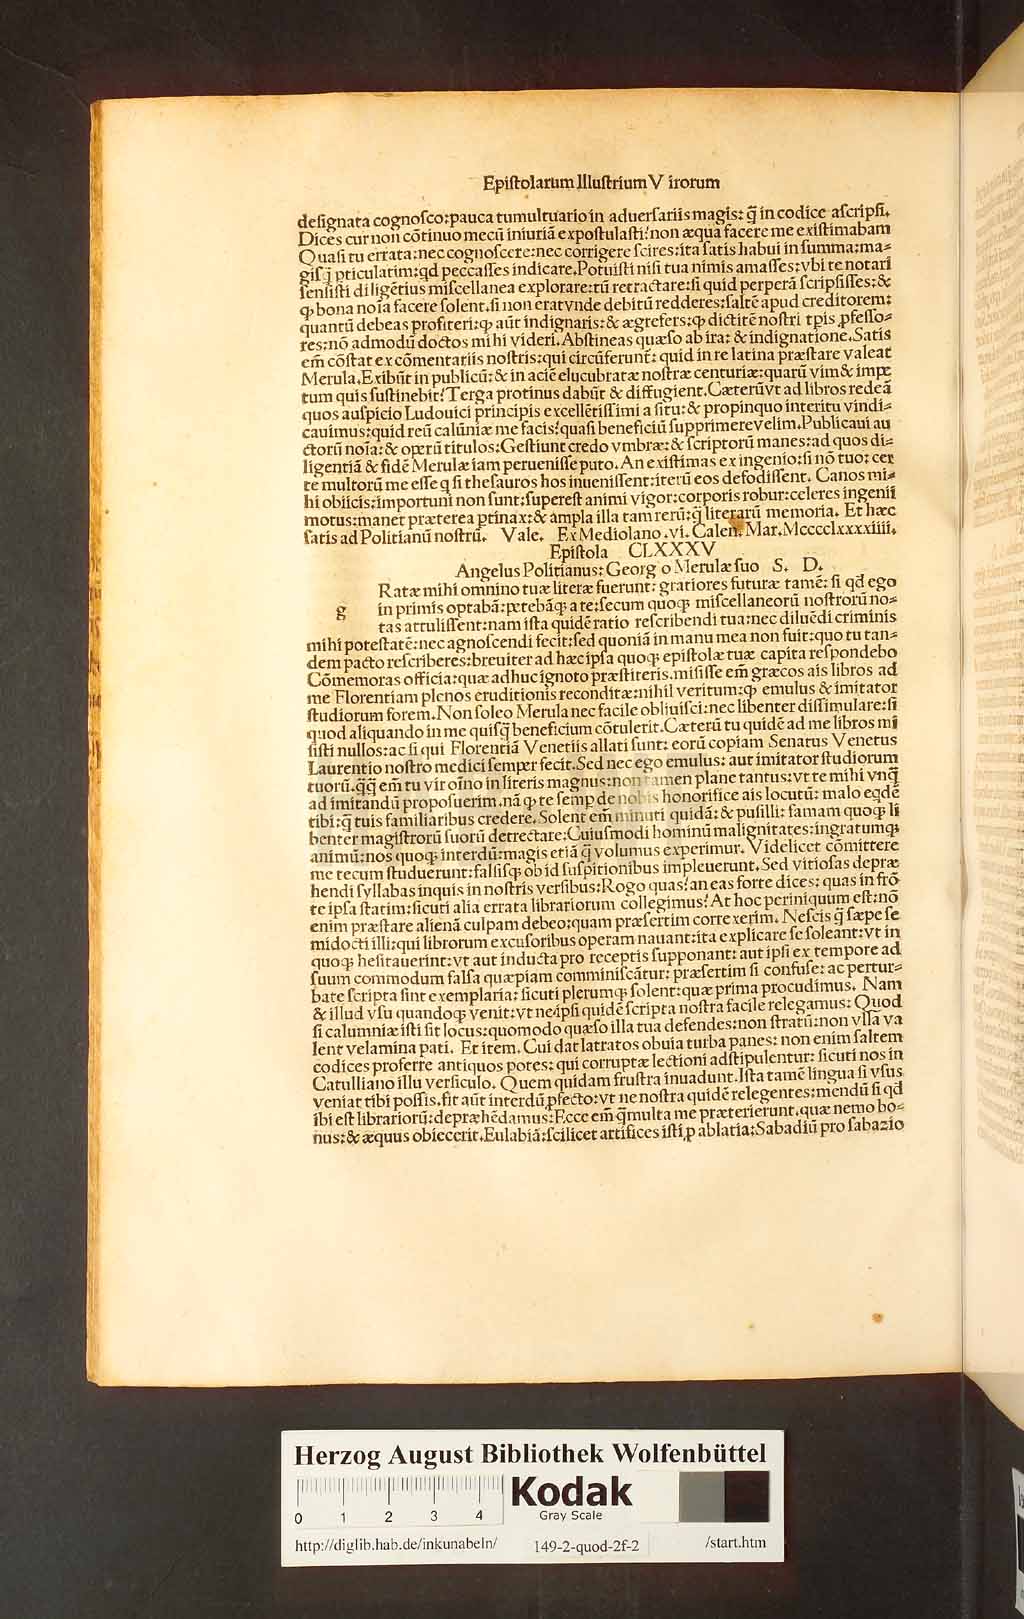 Epiſtolarum Illuſtrium V irorum
deſignata cognoſco:pauca tumultuario in aduerſariis magis: q̃ in codice aſcripſi.
Dices cur non cõtinuo mecũ iniuriã expoſtulaſti? non æqua facere me exiſtimabam
Quaſi tu errata:nec cognoſcere:nec corrigere ſcires:ita ſatis habui in ſumma:ma⸗
giſq̃ pticulatim:qd peccaſſes indicare.Potuiſti niſi tua nimis amaſſes:vbi te notari
ſenſiſti diligẽtius miſcellanea explorare:tũ retractare:ſi quid perperã ſcripſiſſes:&
ꝙ bona noĩa facere ſolent.ſi non erat vnde debitũ redderes:ſaltẽ apud creditorem:
quantũ debeas profiteri:ꝙ aũt indignaris:& ægrefers:ꝙ dictitẽ noſtri tp̃is ꝓfeſſo⸗
res:nõ admodũ doctos mihi videri.Abſtineas quæſo ab ira: & indignatione.Satis
em̃ cõſtat ex cõmentariis noſtris:qui circũferunt̃: quid in re latina præſtare valeat
Merula.Exibũt in publicũ:& in aciẽ elucubratæ noſtræ centuriæ:quarũ vim & impe
tum quis ſuſtinebit? Terga protinus dabũt & diffugient.Cæterũ vt ad libros redeã
quos auſpicio Ludouici principis excellẽtiſſimi a ſitu:& propinquo interitu vindi⸗
cauimus:quid reũ calũniæ me facis? quaſi beneficiũ ſupprimere velim.Publicaui au
ctorũ noĩa:& operũ titulos:Geſtiunt credo vmbræ:& ſcriptorũ manes:ad quos di⸗
ligentiã & fidẽ Merulæ iam perueniſſe puto.An exiſtimas ex ingenio:ſi nõ tuo: cer
te multorũ me eſſe q ſi theſauros hos inueniſſent:iterũ eos defodiſſent. Canos mi⸗
hi obiicis:importuni non ſunt:ſupereſt animi vigor:corporis robur:celeres ingenii
motus:manet præterea ptinax:& ampla illa tam rerũ:q̃ literarũ memoria. Et hæc
ſatis ad Politianũ noſtrũ. Vale. Ex Mediolano .vi. Calen. Mar.Mccccclxxxxiiii.
Epiſtola CLXXXV
Angelus Politianus: Georg o Merulæ ſuo S. D.
g Ratæ mihi omnino tuæ literæ fuerunt: gratiores futuræ tamẽ: ſi qd ego
in primis optabã:petebãqꝫ a te:ſecum quoqꝫ miſcellaneorũ noſtrorũ no⸗
tas attuliſſent:nam iſta quidẽ ratio reſcribendi tua:nec diluẽdi criminis
mihi poteſtatẽ:nec agnoſcendi fecit:ſed quoniã in manu mea non fuit:quo tu tan⸗
dem pacto reſcriberes:breuiter ad hæc ipſa quoqꝫ epiſtolæ tuæ capita reſpondebo
Cõmemoras officia:quæ adhuc ignoto præſtiteris.miſiſſe em̃ græcos ais libros ad
me Florentiam plenos eruditionis reconditæ:nihil veritum:ꝙ emulus & imitator
ſtudiorum forem.Non ſoleo Merula nec facile obliuiſci:nec libenter diſſimulare:ſi
quod aliquando in me quiſq̃ beneficium cõtulerit.Cæterũ tu quidẽ ad me libros mi
ſiſti nullos:ac ſi qui Florentiã Venetiis allati ſunt: eorũ copiam Senatus Venetus
Laurentio noſtro medici ſemper fecit.Sed nec ego emulus: aut imitator ſtudiorum
tuorũ.q̃q̃ em̃ tu vir oĩno in literis magnus:non tamen plane tantus:vt te mihi vnq̃
ad imitandũ propoſuerim.nã ꝙ te ſemp de nobis honorifice ais locutũ: malo eqdẽ
tibi:q̃ tuis familiaribus credere. Solent em̃ minuti quidã: & puſilli: famam quoqꝫ li
benter magiſtrorũ ſuorũ detrectare:Cuiuſmodi hominũ malignitates:ingratumqꝫ
animũ:nos quoqꝫ interdũ:magis etiã q̃ volumus experimur. Videlicet cõmittere
me tecum ſtuduerunt:falſiſqꝫ ob id ſuſpitionibus impleuerunt. Sed vitioſas depræ
hendi ſyllabas inquis in noſtris verſibus:Rogo quas? an eas forte dices: quas in frõ
te ipſa ſtatim:ſicuti alia errata librariorum collegimus? At hoc periniquum eſt:nõ
enim præſtare alienã culpam debeo:quam præſertim correxerim. Neſcis q̃ ſæpe ſe
midocti illi:qui librorum excuſoribus operam nauant:ita explicare ſe ſoleant:vt in
quoqꝫ heſitauerint:vt aut inducta pro receptis ſupponant: aut ipſi ex tempore ad
ſuum commodum falſa quæpiam comminiſcãtur: præſertim ſi confuſe: ac pertur⸗
bate ſcripta ſint exemplaria: ſicuti plerumqꝫ ſolent:quæ prima procudimus. Nam
& illud vſu quandoqꝫ venit:vt neipſi quidẽ ſcripta noſtra facile relegamus: Quod
ſi calumniæ iſti ſit locus:quomodo quæſo illa tua defendes:non ſtratũ:non vlla va
lent velamina pati. Et item. Cui dat latratos obuia turba panes: non enim ſaltem
codices proferre antiquos potes: qui corruptæ lectioni adſtipulentur: ſicuti nos in
Catulliano illu verſiculo. Quem quidam fruſtra inuadunt.Iſta tamẽ lingua ſi vſus
veniat tibi poſſis.fit aũt interdũ ꝓfecto:vt ne noſtra quidẽ relegentes:mendũ ſi qd
ibi eſt librariorũ:depræhẽdamus:Ecce em̃ q̃multa me præterierunt.quæ nemo bo⸗
nus:& æquus obiecerit.Eulabiã:ſcilicet artifices iſti,ꝓ ablatia:Sabadiũ pro ſabazio
Herzog August Bibliothek Wolfenbüttel
0 1 2 3 4
Kodak
Gray Scale
http://diglib.hab.de/inkunabeln/ 149-2-quod-2f-2 /start.htm